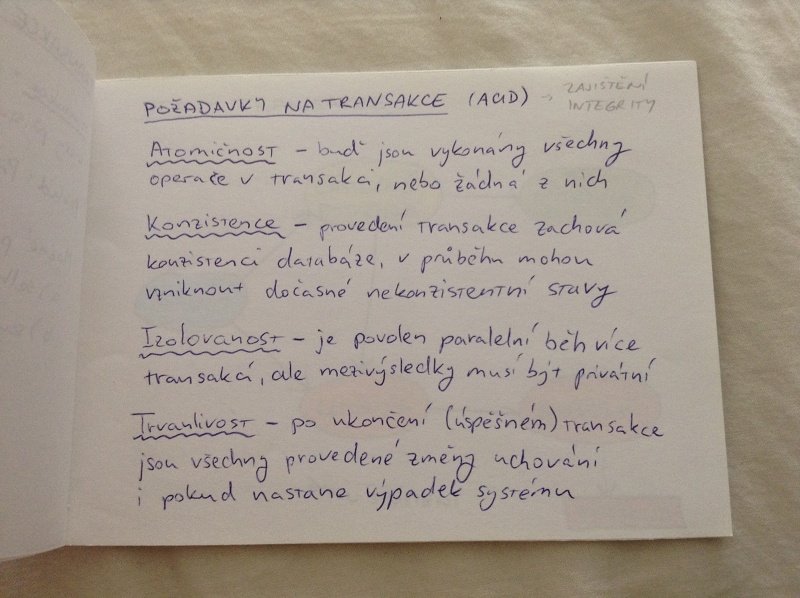 POŽADAVKY NA TRANSAKCE (ACID) → ZAJIŠTĚNÍ
INTEGRITY
Atomičnost – buď jsou vykonány všechny
operače v transakci, nebo žádná z nich
Konzistence – provedení transakce zachová
konzistenci databáze, v průběhu mohou
vzniknout dočasné nekonzistentní stavy
Izolovanost – je povolen paralelní běh více
transakcí, ale mezivýsledky musí být privátní
Trvanlivost – po ukončení (úspěšném) transakce
jsou všechny provedené změny uchování
i pokud nastane výpadek systému